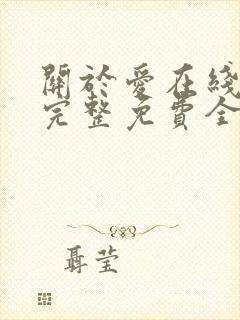 關於愛在綫
完整免費全
聶莹